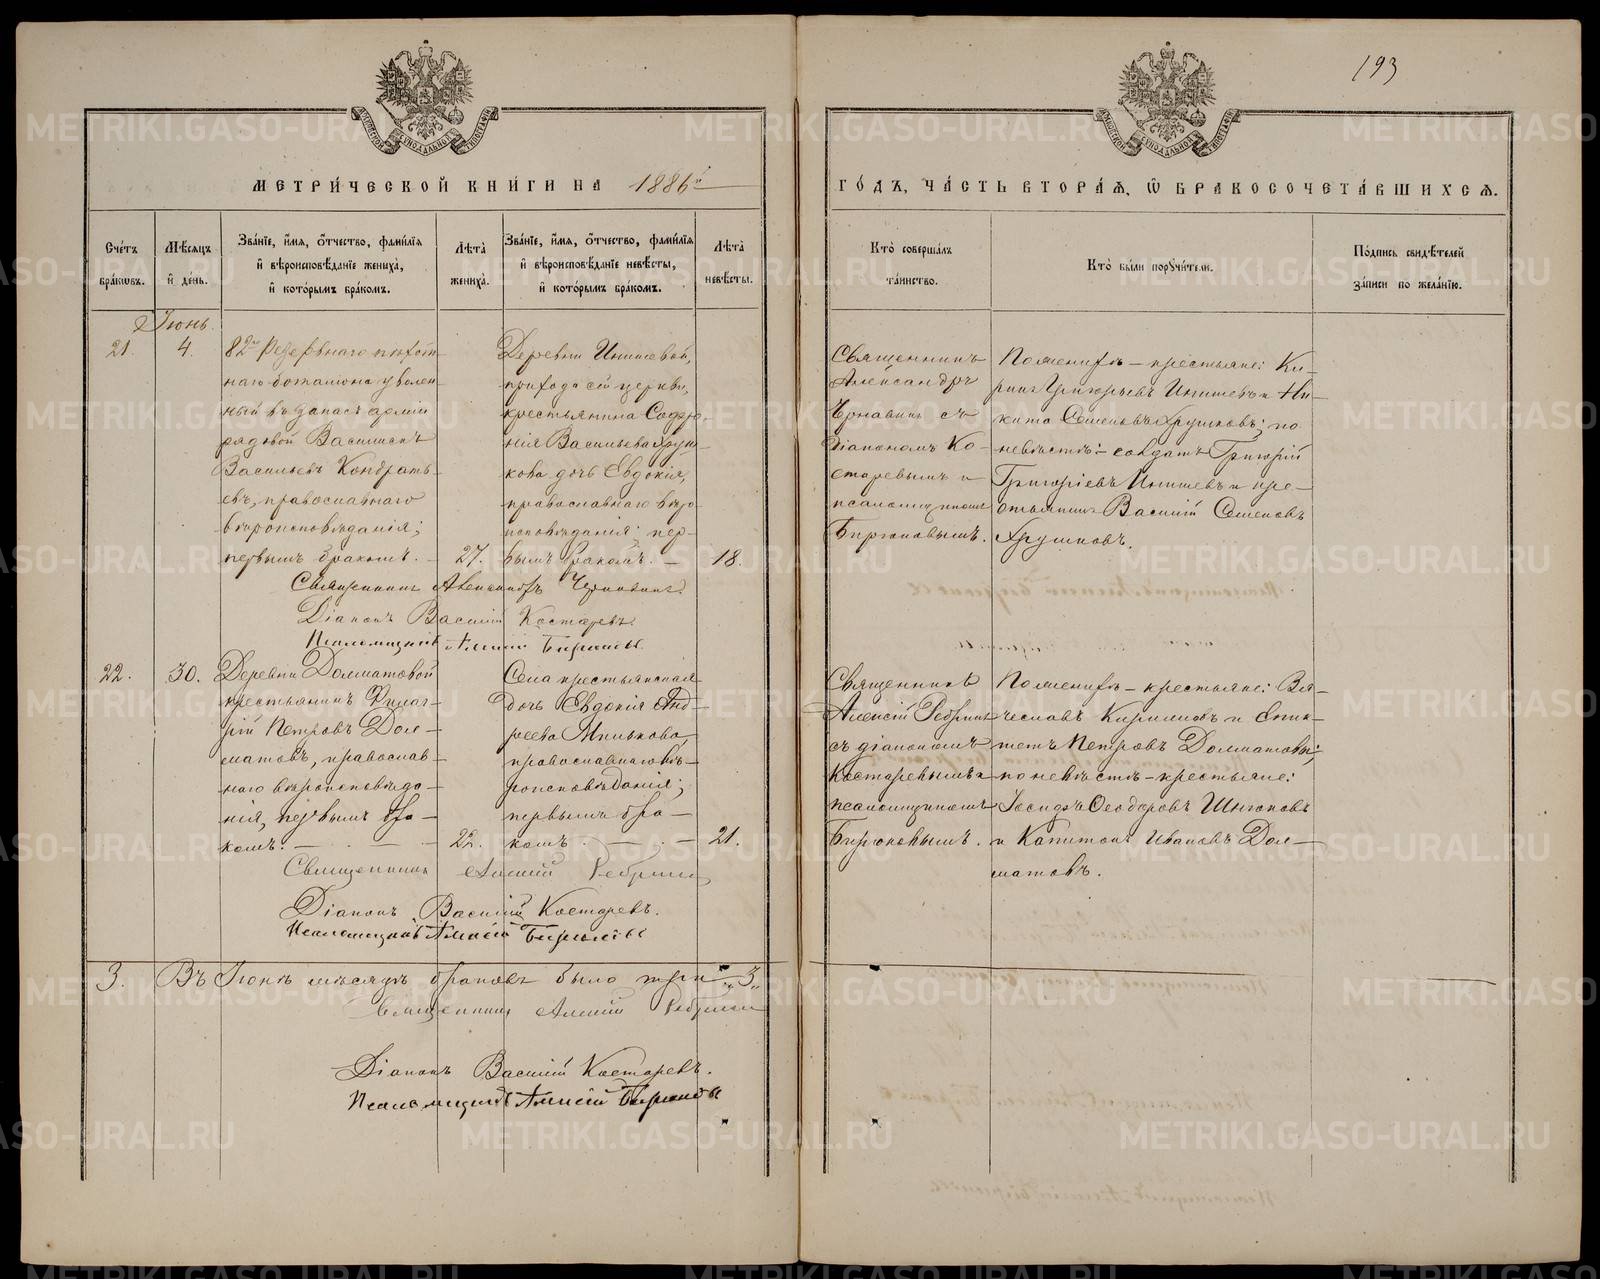 193
МЕТРИЧЕСКОЙ КНИГИ НА 1886й
ГОДЪ, ЧАСТЬ ВТОРАЯ, Ѿ БРАКОСОЧЕТАВШИХСЯ.
Счетъ браковъ.
Мѣсяцъ и день.
Званіе, имя, отчество, фамилія и вѣроисповѣданіе жениха, и которымъ бракомъ.
Лѣта жениха.
Званіе, имя, отчество, фамилія и вѣроисповѣданіе невѣсты, и которымъ бракомъ.
Лѣта невѣсты.
Кто совершалъ таинство.
Кто были поручители.
Подпись свидѣтелей записи по желанію.
Іюнь
21.
4.
82го Резервнаго пѣхот-
наго баталіона уволен-
ный въ запасъ арміи
рядовой Василискъ
Васильевъ Кондрать-
евъ, православнаго
вѣроисповѣданія;
первымъ бракомъ.
27.
Деревни
прихода сей церкви,
крестьянина Софро-
нія Васильева Хруш-
кова дочь Евдокія,
православнаго вѣро-
исповѣданія; пер-
вымъ бракомъ. —
18.
Священникъ
Александръ
Чернавинъ съ
діакономъ Ко-
старевымъ и
псаломщикомъ
Бирюковымъ.
По женихѣ — крестьяне: Ки-
Григорьевъ и Ни-
кита Семеновъ Хрушковъ; по
невѣстѣ: — солдатъ Григорій
Григоріевъ и кре-
стьянинъ Василій Семеновъ
Хрушковъ.
Священникъ Александръ Чернавинъ.
Діаконъ Василій Костаревъ.
Псаломщикъ Алексій Бирюковъ
22.
30.
Деревни Долматовой
крестьянинъ Филаг-
рій Петровъ Дол-
матовъ, православ-
наго вѣроисповѣда-
нія, первымъ бра-
комъ. —
22.
Села крестьянская
дочь Евдокія Анд-
реева Милькова,
православнаго вѣ-
роисповѣданія;
первымъ бра-
комъ. —
21.
Священникъ
Алексій Ребринъ
съ діакономъ
Костаревымъ и
псаломщикомъ
Бирюковымъ.
По женихѣ — крестьяне: Вя-
чеславъ Кирилловъ и Епик-
тетъ Петровъ Долматовы;
по невѣстѣ — крестьяне:
Іосифъ Ѳеодоровъ
и Капитонъ Ивановъ Дол-
матовъ.
Священникъ Алексій Ребринъ
Діаконъ Василій Костаревъ.
Псаломщикъ Алексій Бирюковъ
3. Въ Іюнѣ мѣсяцѣ браковъ было три „3„
Священникъ Алексій Ребринъ
Діаконъ Василій Костаревъ.
Псаломщикъ Алексій Бирюковъ
METRIKI.GASO-URAL.RU